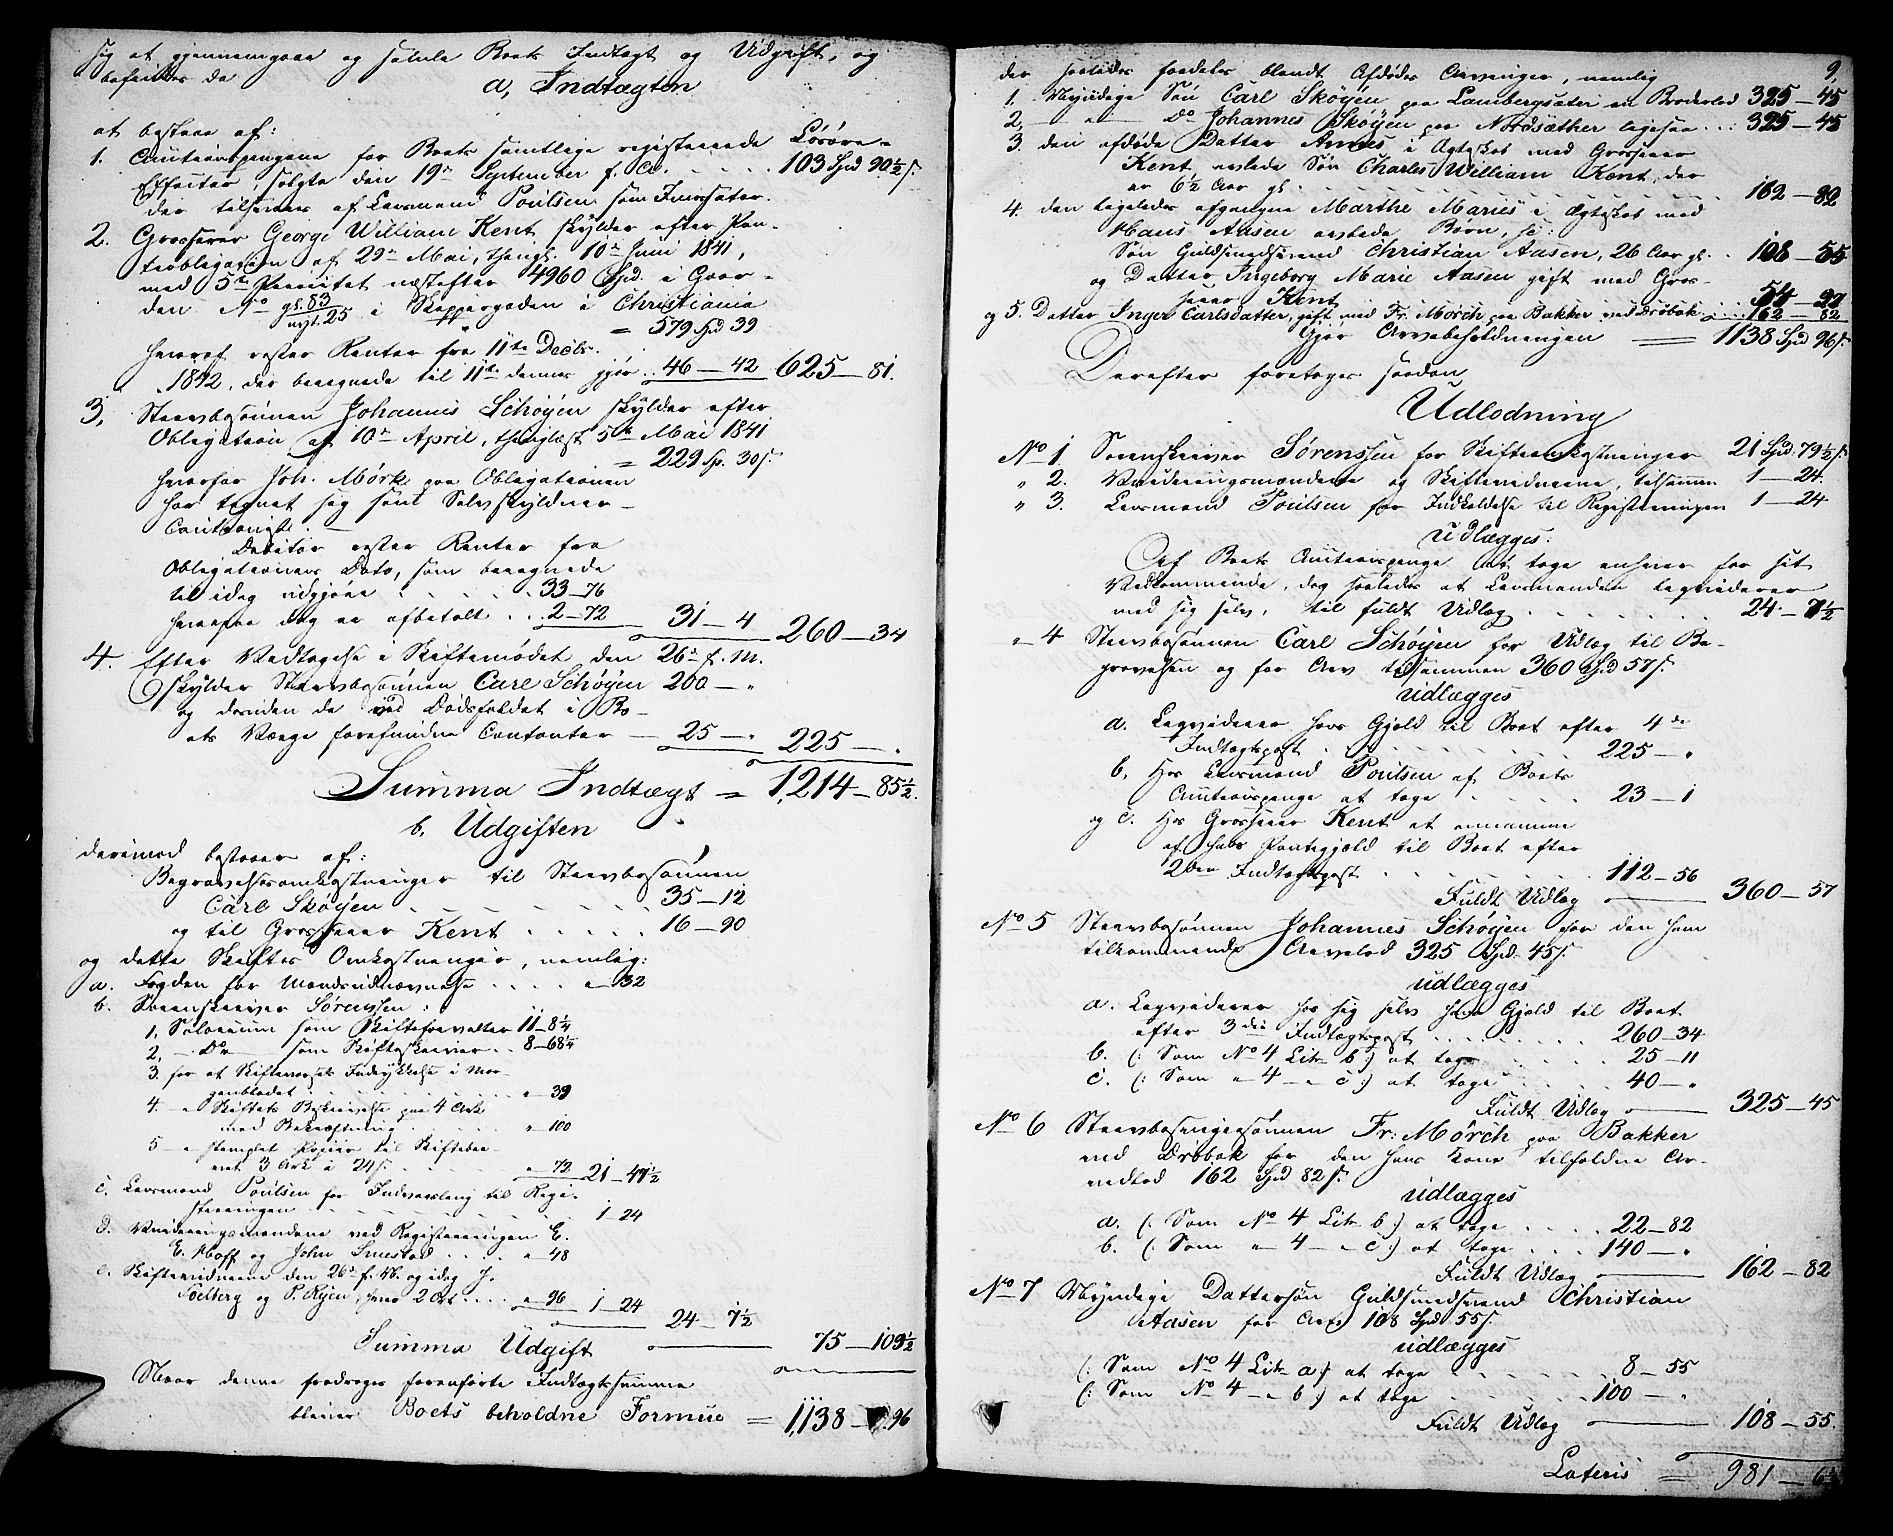 sig at gjennemgaae og samle Boets Indtægt og Udgift, og
befindes da
a, Indtægten
at bestaae af:
1. Auctionspengene for Boets samtlige registrerede Løsøre-
Effecter, solgte den 19de September f. A. . . . . 103 Spd 90½ s.
der tilsvares af Lensmand Poülsen som Incassator.
2. Grosserer George William Kent skylder efter Pan-
teobligation af 29de Mai, thingl. 10de Juni 1841,
med 5te Prioritet næstefter 4960 Spd. i Gaar-
den No gl. 83 nyt. 25 i Skippergaden i Christiania
= 579 Spd 39
hvoraf rester Renter fra 11te Decbr.
1842, der beregnede til 11te dennes gjør . . 46 — 42 625 — 81.
3, Stervbosønnen Johannis Schøÿen skylder efter
Obligation af 10de April, thinglæst 5te Mai 1841
= 229 Sp. 30 s.
hvorfor Joh. Mörk paa Obligationen
har tegnet sig som Selvskyldner-
Cautionist. —
Debitor rester Renter fra
Obligationens Dato, som beregnede
til idag udgjøre . . . . . 33 — 76
hvorpaa dog er afbetalt . . . 2 — 72 31 — 4 260 — 34
4. Efter Vedtagelse i Skiftemødet den 26de f. M.
skylder Stervbosønnen Carl Schøÿen 200 — "
og desuden de ved Dødsfaldet i Bo-
ets Værge forefundne Contanter — 25 — " 225 — "
Summa Indtægt = 1,214 — 85½.
b, Udgiften
derimod bestaaer af:
Begravelsesomkostninger til Stervbosønnen
Carl Skøÿen . . . . . . . 35 — 12
og til Grosserer Kent . . . . . 16 — 90
og dette Skiftes Omkostninger, nemlig:
a. Fogden for Mændsudnævnelse . . . . " — 32
b. Sorenskriver Sørenssen:
1, Salarium som Skifteforvalter 11 — 8¼
2, — Do — som Skifteskriver . . 8 — 68¼
3. for et Skifteværsels Indrykkelse i Mor-
genbladet . . . . . . . " — 39
4. — " Skiftets Beskrivelse paa 4 Ark
med Bekræftning . . . . . . " — 100
5 — " stemplet Papiir til Skiftebre-
vet 3 Ark á 24 s. . . . . . " — 72 21 — 47½
c. Lensmand Poülsen for Indvarsling til Regi-
streringen . . . . . . . . 1 — 24
d. Vurderingsmændene ved Registreringen E.
E. Hoff og John Smestad . . . . " — 48
e. Skiftevidnerne den 26de f. M. og idag J.
Solberg og P. Ryen, hver 2 Ort . . . . " — 96 1 — 24
24 — 7½
Summa Udgift 75 — 109½
Naar denne fradrages foranførte Indtægtssumma
bliver Boets beholdne Formue = 1,138 — 96
9,
der saaledes fordeles blandt Afdødes Arvinger, nemlig
1. Myndige Søn Carl Skøÿen paa Lambergsæteri en Broderlod 325 — 45
2, — " — Do Johannes Skøÿen paa Nordsæther ligesaa . . : 325 — 45
3. den afdøde Datter Annes i Ægteskab med Grosserer
Kent avlede Søn Charles William Kent, der
er 6½ Aar gl. . . . . . . . . . 162 — 82
4. den ligeledes afgangne Marthe Maries i Ægteskab med
Hans Aasen avlede Børn, sc:
Søn Guldsmedsvend Christian Aasen, 26 Aar gl. . 108 — 55
og Datter Ingeborg Marie Aasen gift med Gros-
serer Kent . . . 54 — 27
og 5. Datter Inger Carlsdatter, gift med Fr. Mörch paa Bakker ved Drøbak . . . 162 — 82
Gjør Arvebeholdningen = 1138 Spd 96 s.
Derefter foretoges saadan
Udlodning
No 1 Sorenskriver Sørenssen for Skifteomkostninger 21 Spd. 79½ s.
" 2. Vurderingsmændene og Skiftevidnerne, tilsammen 1 — 24.
" 3. Lensmand Poülsen for Indkaldelse til Registreringen 1 — 24
udlægges:
Af Boets Auctionspenge at tage enhver for sit
Vedkommende, dog saaledes at Lensmanden liqviderer
med sig selv, til fuldt Udlæg . . . . . . . 24 — 7½
" 4 Stervbosønnen Carl Schøÿen for Udlæg til Be-
gravelsen og for Arv tilsammen 360 Spd 57 s.
udlægges
a. Liqviderer hans Gjæld til Boet efter 4de
Indtægtspost . . . . . . . . 225 — "
b, Hos Lensmand Poülsen af Boets
Auctionspenge at tage . . . . 23 — 1
og c. Hos Grosserer Kent at annamme
af hans Pantegjæld til Boet efter
2den Indtægtspost . . . . . . . 112 — 56
Fuldt Udlæg — 360 — 57
No 5 Stervbosønnen Johannes Schøÿen for den ham
tilkommende Arvelod 325 Spd. 45 s.
udlægges
a. Liqviderer hos sig selv hans Gjæld til Boet
efter 3die Indtægtspost . . . . . . . 260 — 34
b. (: Som No 4 Litr b:) at tage . . . . 25 — 11
c. (: Som " 4 — " c:) at tage . . . . 40 — "
Fuldt Udlæg — 325 — 45
No 6 Stervbosvigersønnen Fr: Mörch paa Bakker
ved Drøbak for den hans Kone tilfaldne Ar-
velod 162 Spd 82 s.
udlægges
a. (: Som No 4 Litr b:) at tage . . . . 22 — 82
b. (: Som " 4 — " c:) at tage . . . 140 — "
Fuldt Udlæg — 162 — 82
No 7 Myndige Dattersøn Guldsmedsvend Christian
Aasen for Arv 108 Spd 55 s.
udlægges
(: Som No 4 Litr a:) at tage . . . . . 8 — 55
(: Som No 4 — " b:) at tage . . . . . 100 — "
Fuldt Udlæg — 108 — 55.
Lateris = 981 —